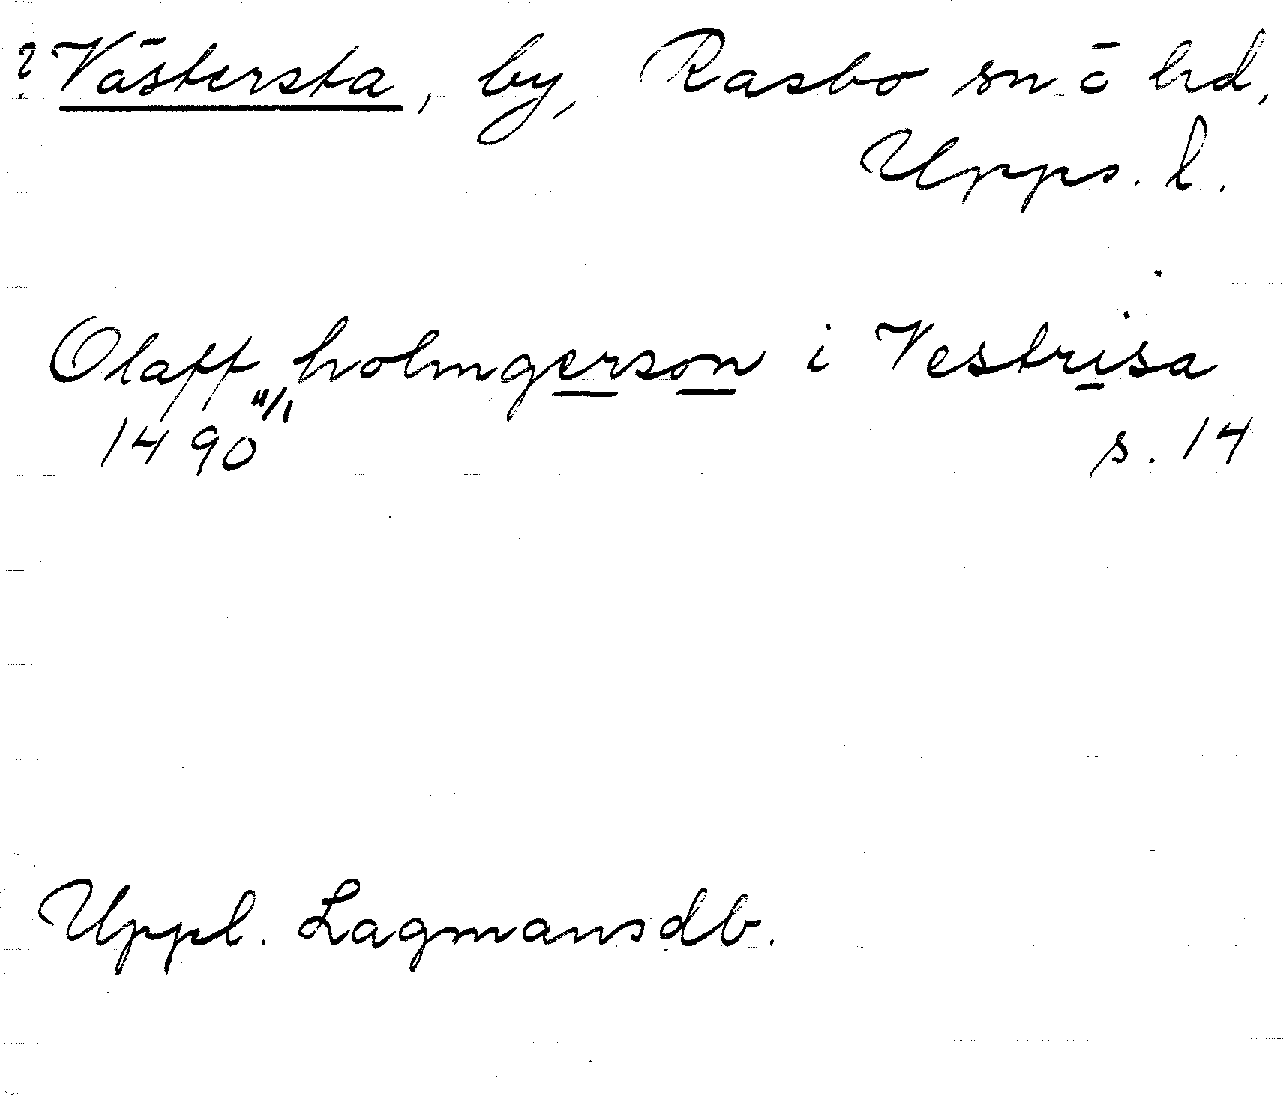 ? Västersta, by, Rasbo sn o hd,
Upps. l.
Olaff holmgerson i Vestrisa
1490 11/1 s. 14
Uppl. Lagmansdb.